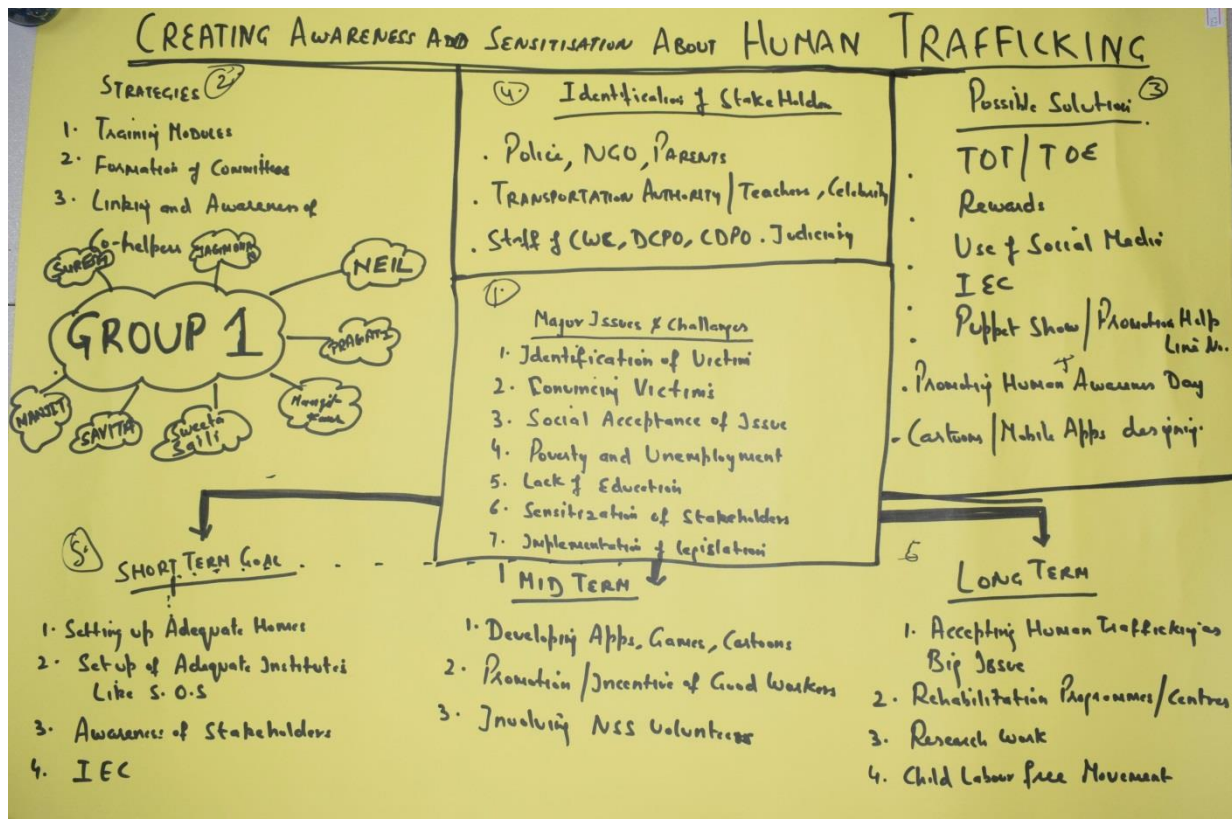 CREATING AWARENESS AND SENSITISATION ABOUT HUMAN TRAFFICKING
STRATEGIES (2)
1. Training Modules
2. Formation of Committees
3. Linking and Awareness of
Co-helpers
SURESH
JAGMOHAN
NEIL
GROUP 1
PRAGATI
MANJIT
SAVITA
Sweeta
Saili
Manjit
Kaur
(4) Identification of StakeHolders
. Police, NGO, PARENTS
. TRANSPORTATION AUTHORITY / Teachers, Celebrity
. Staff of CWC, DCPO, CDPO. Judiciary
(1) Major Issues & Challanges
1. Identification of Victim
2. Convincing Victims
3. Social Acceptance of Issue
4. Poverty and Unemployment
5. Lack of Education
6. Sensitization of Stakeholders
7. Implementation of legislation
Possible Solution (3)
. TOT / TOE
. Rewards
. Use of Social Media
. IEC
. Puppet Show / Promotion Help
Line No.
. Promoting Human T Awareness Day
- Cartoons / Mobile Apps designing.
(5) SHORT TERM GOAL
1. Setting up Adequate Homes
2. Set up of Adequate Institutes
Like S.O.S
3. Awareness of Stakeholders
4. IEC
MID TERM
1. Developing Apps, Games, Cartoons
2. Promotion / Incentive of Good Workers
3. Involving NSS Volunteers
6
LONG TERM
1. Accepting Human Trafficking as
Big Issue
2. Rehabilitation Programmes / Centres
3. Research Work
4. Child Labour free Movement